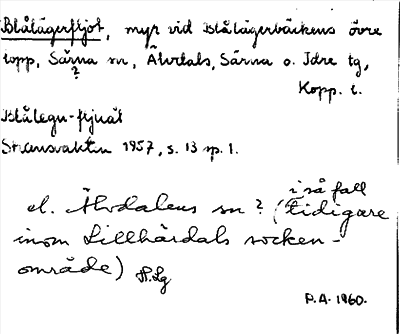 Blålägerfljot, myr vid Blålägerbäckens övre
topp, Särna sn, Älvdals, Särna o. Idre tg,
?
Kopp. l.
Blålegu-fljuåt
Strensvaktin 1957, s. 13 sp. 1.
i så fall
el. Älvdalens sn? (tidigare
inom Lillhärdals socken-
område) H.Lg
P.A. 1960.